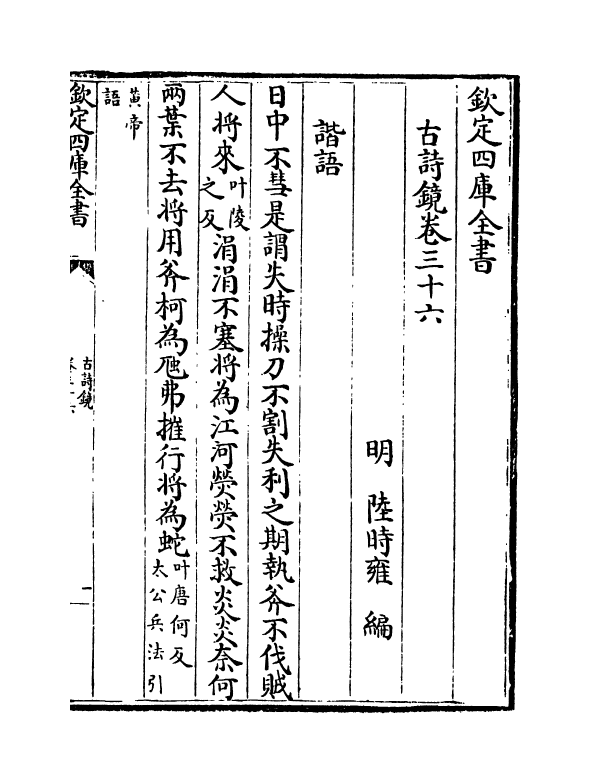 欽定四庫全書
古詩鏡卷三十六
明 陸時雍 編
諧語
日中不彗是謂失時操刀不割失利之期執斧不伐賊
人將來叶陵之反涓涓不塞將為江河熒熒不救炎炎奈何
兩葉不去將用斧柯為虺弗摧行將為蛇叶唐何反太公兵法引
黄帝語
欽定四庫全書
古詩鏡
卷三十六
一